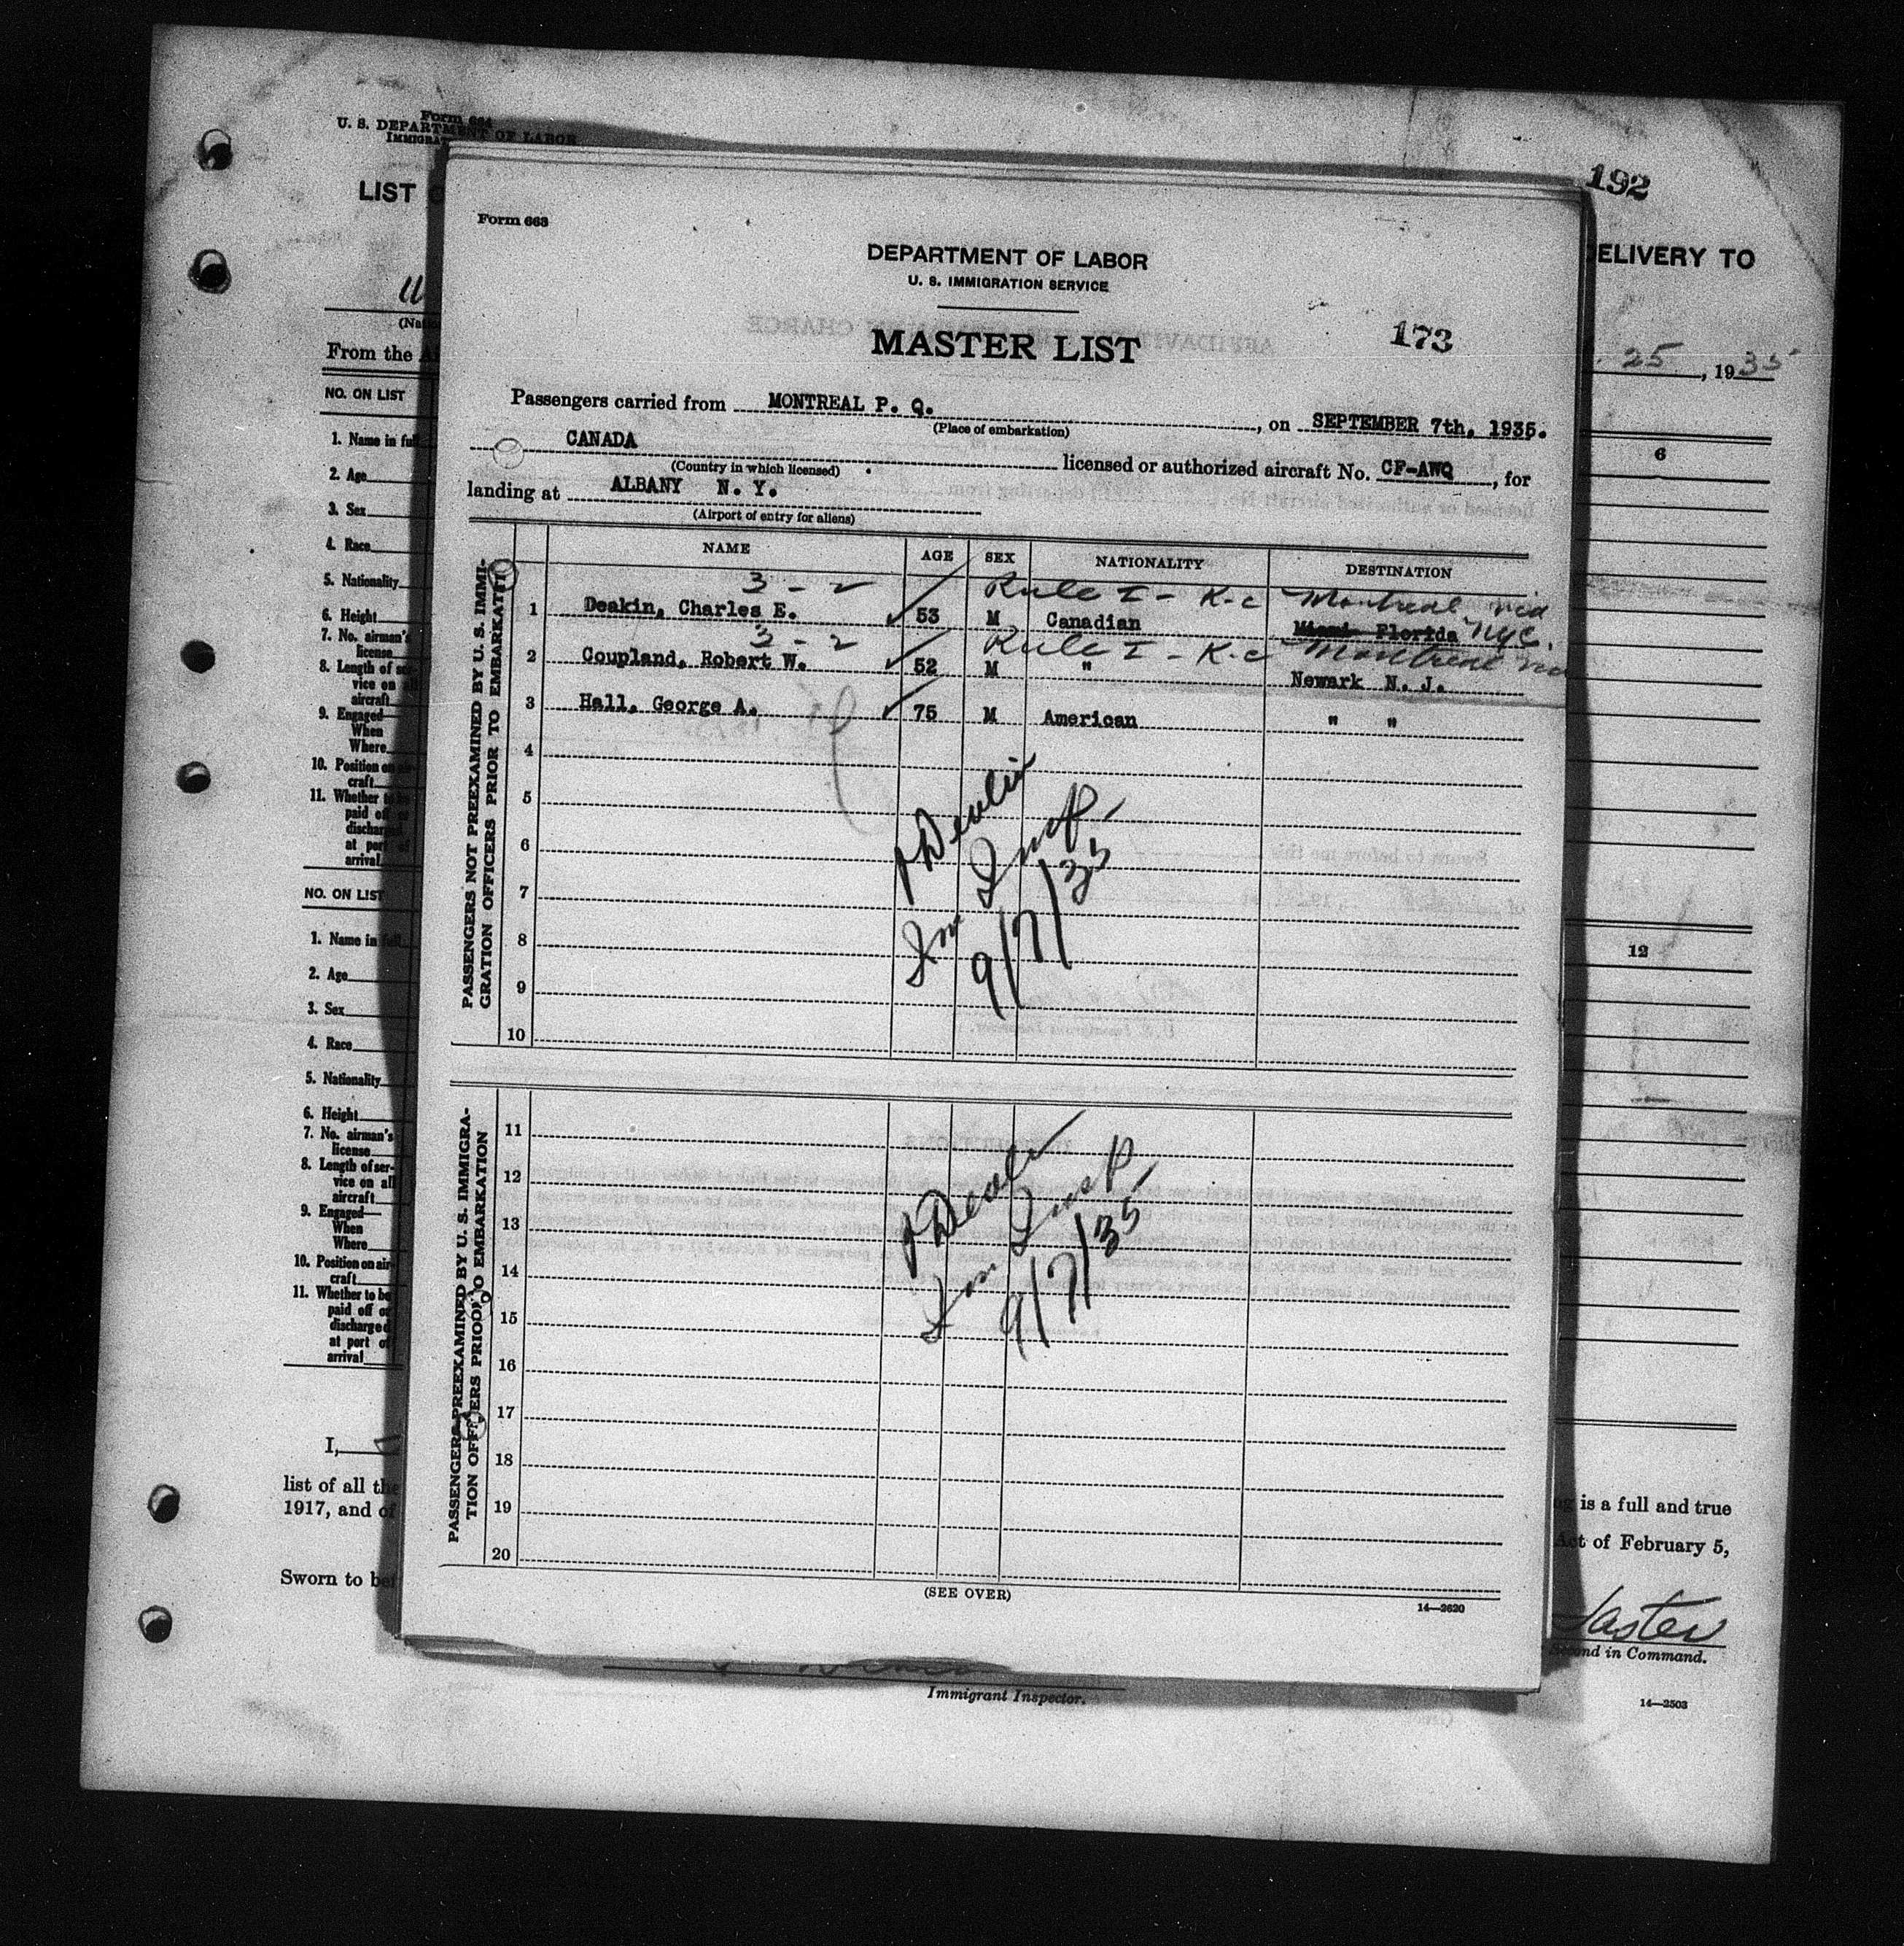 Form 664
U. S. DEPARTMENT OF LABOR
LIST
192
DELIVERY TO
25, 1935
From the
NO. ON LIST
6
1. Name in full
2. Age
3. Sex
4. Race
5. Nationality
6. Height
7. No. airman's
license
8. Length of ser-
vice on all
aircraft
9. Engaged—
When
Where
10. Position on air-
craft
11. Whether to be
paid off or
discharged
at port of
arrival
NO. ON LIST
12
1. Name in full
2. Age
3. Sex
4. Race
5. Nationality
6. Height
7. No. airman's
license
8. Length of ser-
vice on all
aircraft
9. Engaged—
When
Where
10. Position on air-
craft
11. Whether to be
paid off or
discharged
at port of
arrival
I,
list of all the
is a full and true
1917, and of
Act of February 5,
Sworn to bef
Second in Command.
Immigrant Inspector.
14—2503
Form 663
DEPARTMENT OF LABOR
U. S. IMMIGRATION SERVICE
MASTER LIST
173
Passengers carried from MONTREAL P. Q., on SEPTEMBER 7th, 1935.
(Place of embarkation)
CANADA licensed or authorized aircraft No. CF-AWQ, for
(Country in which licensed)
landing at ALBANY N. Y.
(Airport of entry for aliens)
NAME AGE SEX NATIONALITY DESTINATION
PASSENGERS NOT PREEXAMINED BY U. S. IMMI-
GRATION OFFICERS PRIOR TO EMBARKATION
3 - 2 Rule I - K-c Montreal via
1 Deakin, Charles E. 53 M Canadian Miami Florida NYC.
3 - 2 Rule I - K-c Montreal via
2 Coupland, Robert W. 52 M " Newark N. J.
3 Hall, George A. 75 M American " "
4
5
6
7
8
9
10
Imm Insp
9/7/35
PASSENGERS PREEXAMINED BY U. S. IMMIGRA-
TION OFFICERS PRIOR TO EMBARKATION
11
12
13
14
15
16
17
18
19
20
Imm Insp
9/7/35
(SEE OVER)
14—2620